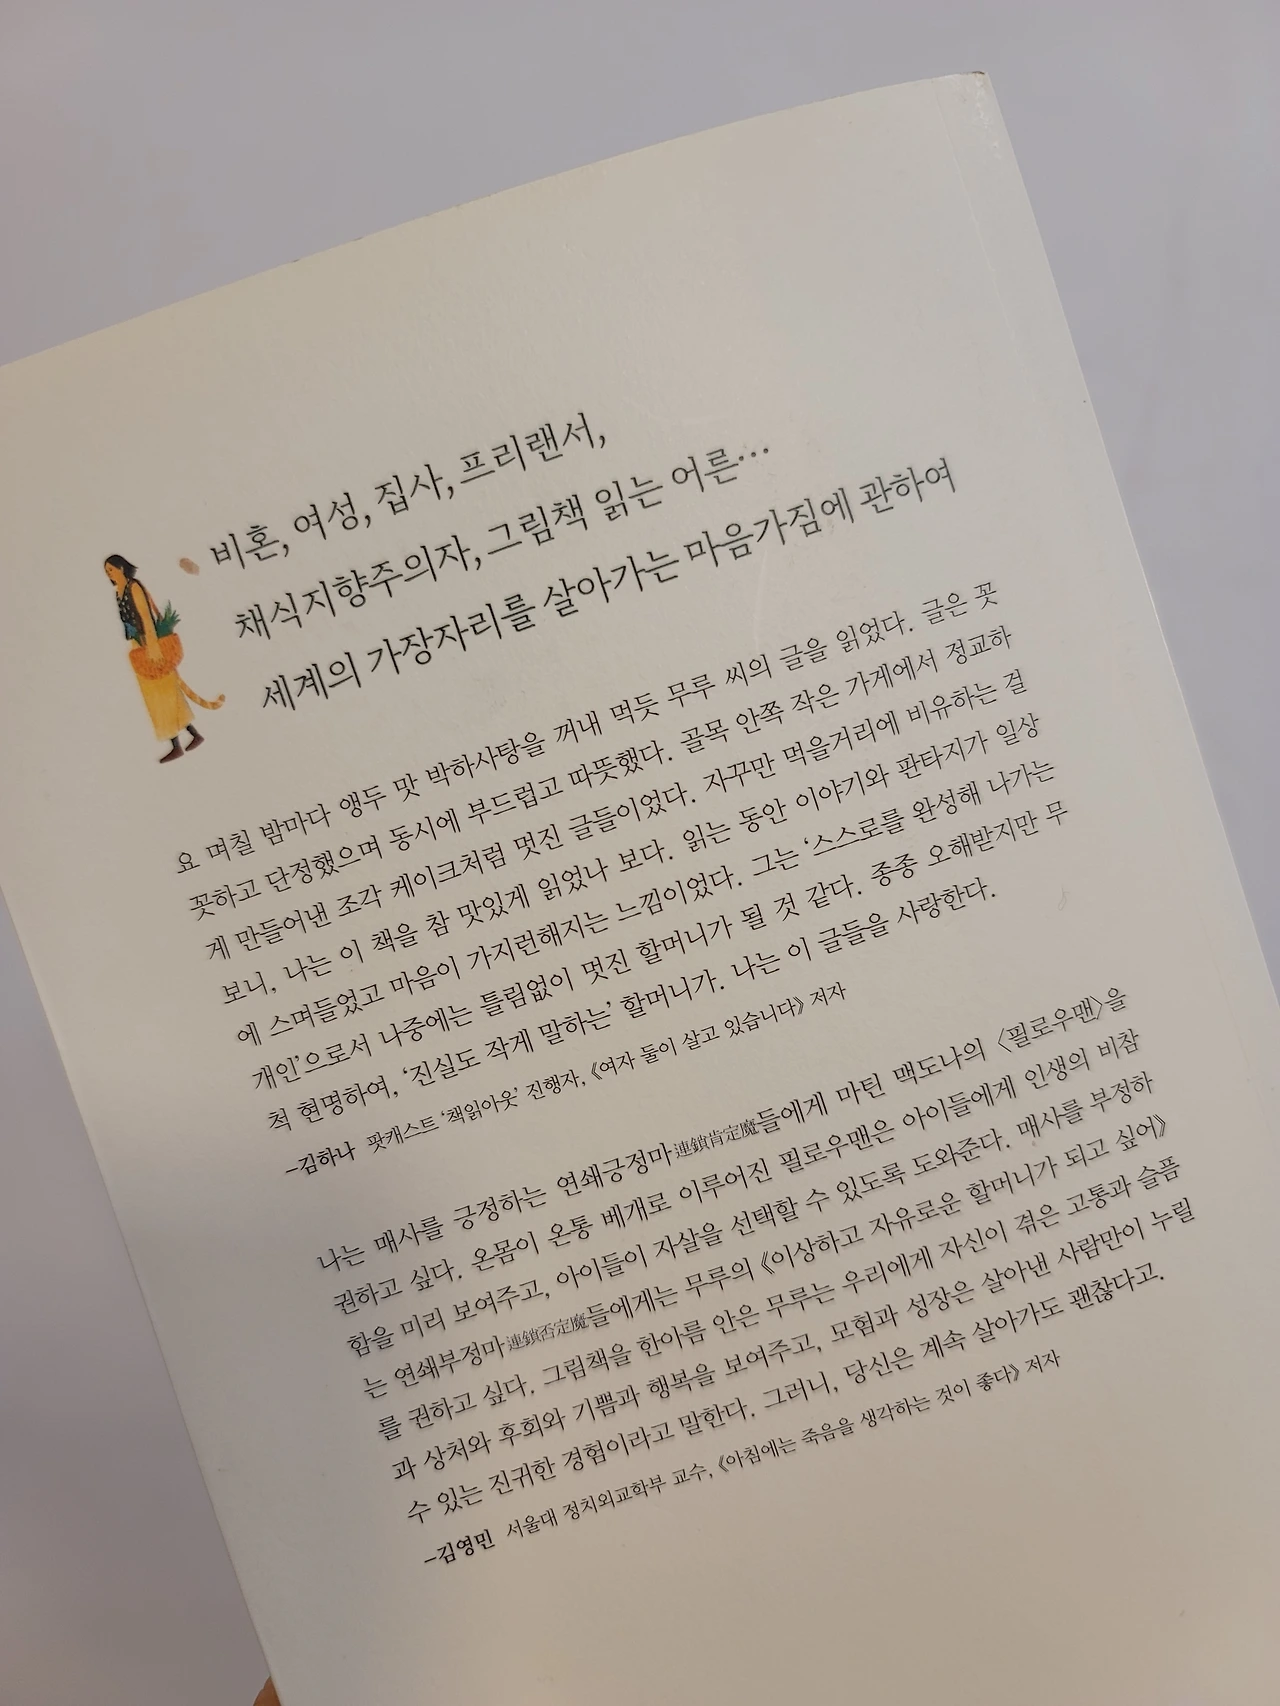 비혼, 여성, 집사, 프리랜서,
채식지향주의자, 그림책 읽는 어른…
세계의 가장자리를 살아가는 마음가짐에 관하여
요 며칠 밤마다 앵두 맛 박하사탕을 꺼내 먹듯 무루 씨의 글을 읽었다. 글은 꼿
꼿하고 단정했으며 동시에 부드럽고 따뜻했다. 골목 안쪽 작은 가게에서 정교하
게 만들어낸 조각 케이크처럼 멋진 글들이었다. 자꾸만 먹을거리에 비유하는 걸
보니, 나는 이 책을 참 맛있게 읽었나 보다. 읽는 동안 이야기와 판타지가 일상
에 스며들었고 마음이 가지런해지는 느낌이었다. 그는 ‘스스로를 완성해 나가는
개인’으로서 나중에는 틀림없이 멋진 할머니가 될 것 같다. 종종 오해받지만 무
척 현명하여, ‘진실도 작게 말하는’ 할머니가. 나는 이 글들을 사랑한다.
–김하나 팟캐스트 ‘책읽아웃’ 진행자, 《여자 둘이 살고 있습니다》 저자
나는 매사를 긍정하는 연쇄긍정마連鎖肯定魔들에게 마틴 맥도나의 〈필로우맨〉을
권하고 싶다. 온몸이 온통 베개로 이루어진 필로우맨은 아이들에게 인생의 비참
함을 미리 보여주고, 아이들이 자살을 선택할 수 있도록 도와준다. 매사를 부정하
는 연쇄부정마連鎖否定魔들에게는 무루의 《이상하고 자유로운 할머니가 되고 싶어》
를 권하고 싶다. 그림책을 한아름 안은 무루는 우리에게 자신이 겪은 고통과 슬픔
과 상처와 후회와 기쁨과 행복을 보여주고, 모험과 성장은 살아낸 사람만이 누릴
수 있는 진귀한 경험이라고 말한다. 그러니, 당신은 계속 살아가도 괜찮다고.
–김영민 서울대 정치외교학부 교수, 《아침에는 죽음을 생각하는 것이 좋다》 저자